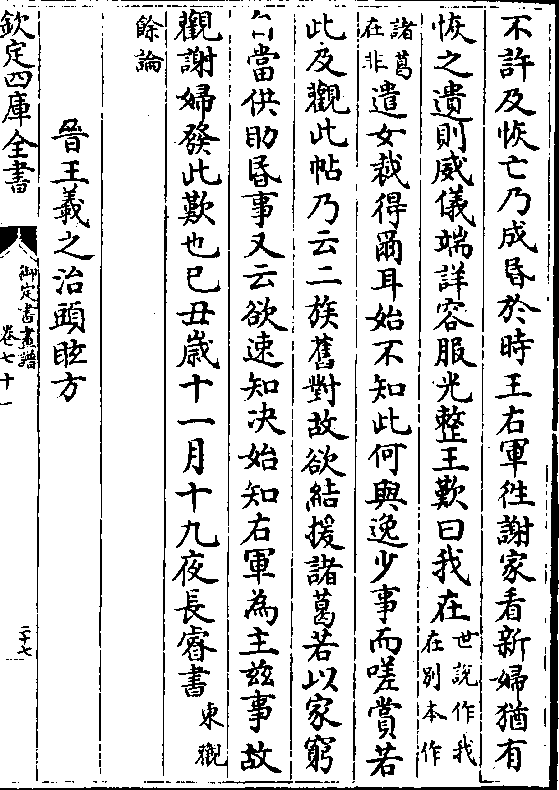 不許及恢亡乃成昏於時王右軍徃謝家看新婦猶有
恢之遺則威儀端詳容服光整王歎曰我在世說作我在別本作
諸葛在非遣女裁得爾耳始不知此何與逸少事而嗟賞若
此及觀此帖乃云二族舊對故欲結援諸葛若以家窮
自當供助昏事又云欲速知决始知右軍為主玆事故
觀謝婦發此歎也己丑歲十一月十九夜長睿書東觀
餘論
晉王羲之治頭眩方
欽定四庫全書
御定書畫譜
卷七十一
二十七